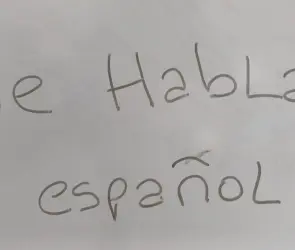 e Habla
español